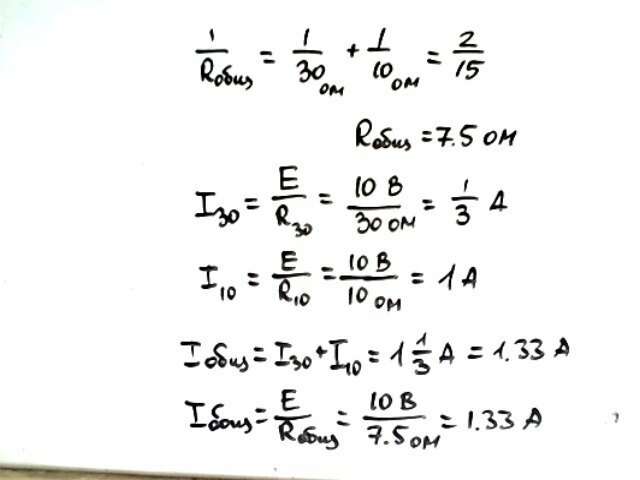 1/Rобщ = 1/30 ом + 1/10 ом = 2/15
Rобщ = 7.5 ом
I30 = E/R30 = 10 В/30 ом = 1/3 А
I10 = E/R10 = 10 В/10 ом = 1 А
Iобщ = I30 + I10 = 1 1/3 А = 1.33 А
Iобщ = E/Rобщ = 10 В/7.5 ом = 1.33 А